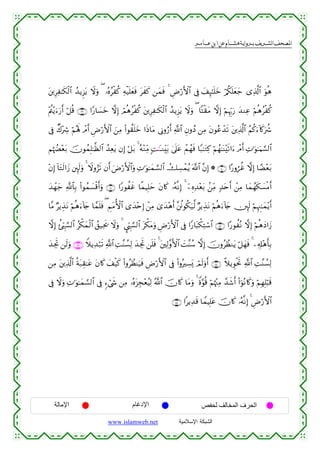 المصحف الشريف برواية هشام عن ابن عامر
هُوَ ٱلَّذِى جَعَلَكُمْ خَلَـٰٓئِفَ فِى ٱلْأَرْضِ ۚ فَمَن كَفَرَ فَعَلَيْهِ كُفْرُهُۥ ۖ وَلَا يَزِيدُ ٱلْكَـٰفِرِينَ
كُفْرُهُمْ عِندَ رَبِّهِمْ إِلَّا مَقْتًا ۖ وَلَا يَزِيدُ ٱلْكَـٰفِرِينَ كُفْرُهُمْ إِلَّا خَسَارًا ۝ قُلْ أَرَءَيْتُمْ
شُرَكَآءَكُمُ ٱلَّذِينَ تَدْعُونَ مِن دُونِ ٱللَّهِ أَرُونِى مَاذَا خَلَقُوا۟ مِنَ ٱلْأَرْضِ أَمْ لَهُمْ شِرْكٌ فِى
ٱلسَّمَـٰوَٰتِ أَمْ ءَاتَيْنَـٰهُمْ كِتَـٰبًا فَهُمْ عَلَىٰ بَيِّنَـٰتٍ مِّنْهُ ۚ بَلْ إِن يَعِدُ ٱلظَّـٰلِمُونَ بَعْضُهُم
بَعْضًا إِلَّا غُرُورًا ۝ ۞ إِنَّ ٱللَّهَ يُمْسِكُ ٱلسَّمَـٰوَٰتِ وَٱلْأَرْضَ أَن تَزُولَا ۚ وَلَئِن زَالَتَآ إِنْ
أَمْسَكَهُمَا مِنْ أَحَدٍ مِّنۢ بَعْدِهِۦٓ ۚ إِنَّهُۥ كَانَ حَلِيمًا غَفُورًا ۝ وَأَقْسَمُوا۟ بِٱللَّهِ جَهْدَ
أَيْمَـٰنِهِمْ لَئِن جَآءَهُمْ نَذِيرٌ لَّيَكُونُنَّ أَهْدَىٰ مِنْ إِحْدَى ٱلْأُمَمِ ۖ فَلَمَّا جَآءَهُمْ نَذِيرٌ مَّا
زَادَهُمْ إِلَّا نُفُورًا ۝ ٱسْتِكْبَارًا فِى ٱلْأَرْضِ وَمَكْرَ ٱلسَّيِّئِ ۚ وَلَا يَحِيقُ ٱلْمَكْرُ ٱلسَّيِّئُ إِلَّا
بِأَهْلِهِۦ ۚ فَهَلْ يَنظُرُونَ إِلَّا سُنَّتَ ٱلْأَوَّلِينَ ۚ فَلَن تَجِدَ لِسُنَّتِ ٱللَّهِ تَبْدِيلًا ۖ وَلَن تَجِدَ
لِسُنَّتِ ٱللَّهِ تَحْوِيلًا ۝ أَوَلَمْ يَسِيرُوا۟ فِى ٱلْأَرْضِ فَيَنظُرُوا۟ كَيْفَ كَانَ عَـٰقِبَةُ ٱلَّذِينَ مِن
قَبْلِهِمْ وَكَانُوٓا۟ أَشَدَّ مِنْهُمْ قُوَّةً ۚ وَمَا كَانَ ٱللَّهُ لِيُعْجِزَهُۥ مِن شَىْءٍ فِى ٱلسَّمَـٰوَٰتِ وَلَا فِى
ٱلْأَرْضِ ۚ إِنَّهُۥ كَانَ عَلِيمًا قَدِيرًا ۝
الحرف المخالف لحفص الإدغام الإمالة
الشبكة الإسلامية www.islamweb.net